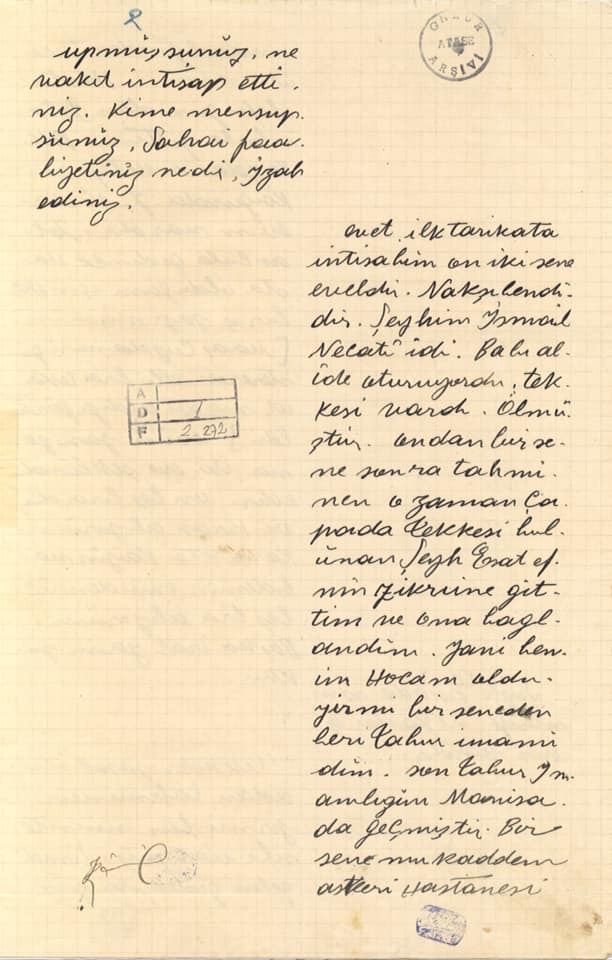 2
upmüşsunüz, ne
vakıt intisap etti.
niz. Kime mensup.
sünüz, Sahai faa.
liyetiniz nedir, İzah
ediniz.
evet, ilk tarikata
intisabim on iki sene
eveldir. Nakşibendi-
dir. Şeyhim İsmail
Necati idi. Babı al-
ide oturuyordu, tek-
kesi vardı. Ölmü-
ştür. ondan bir se-
ne sonra tahmi.
nen o zaman Ça.
pada tekkesi bul.
ünan Şeyh Esat ef.
nin zikrine git-
tim ve ona bagl-
andim. Yani ben-
im Hocam oldu-
yirmi bir seneden
beri tabur imami
dim. son tabur Im.
amlıgim Manisa.
da geçmiştir. Bir
sene mukaddem
askeri Hastanesi
ARŞİVİ
A
D 1
F 2-272